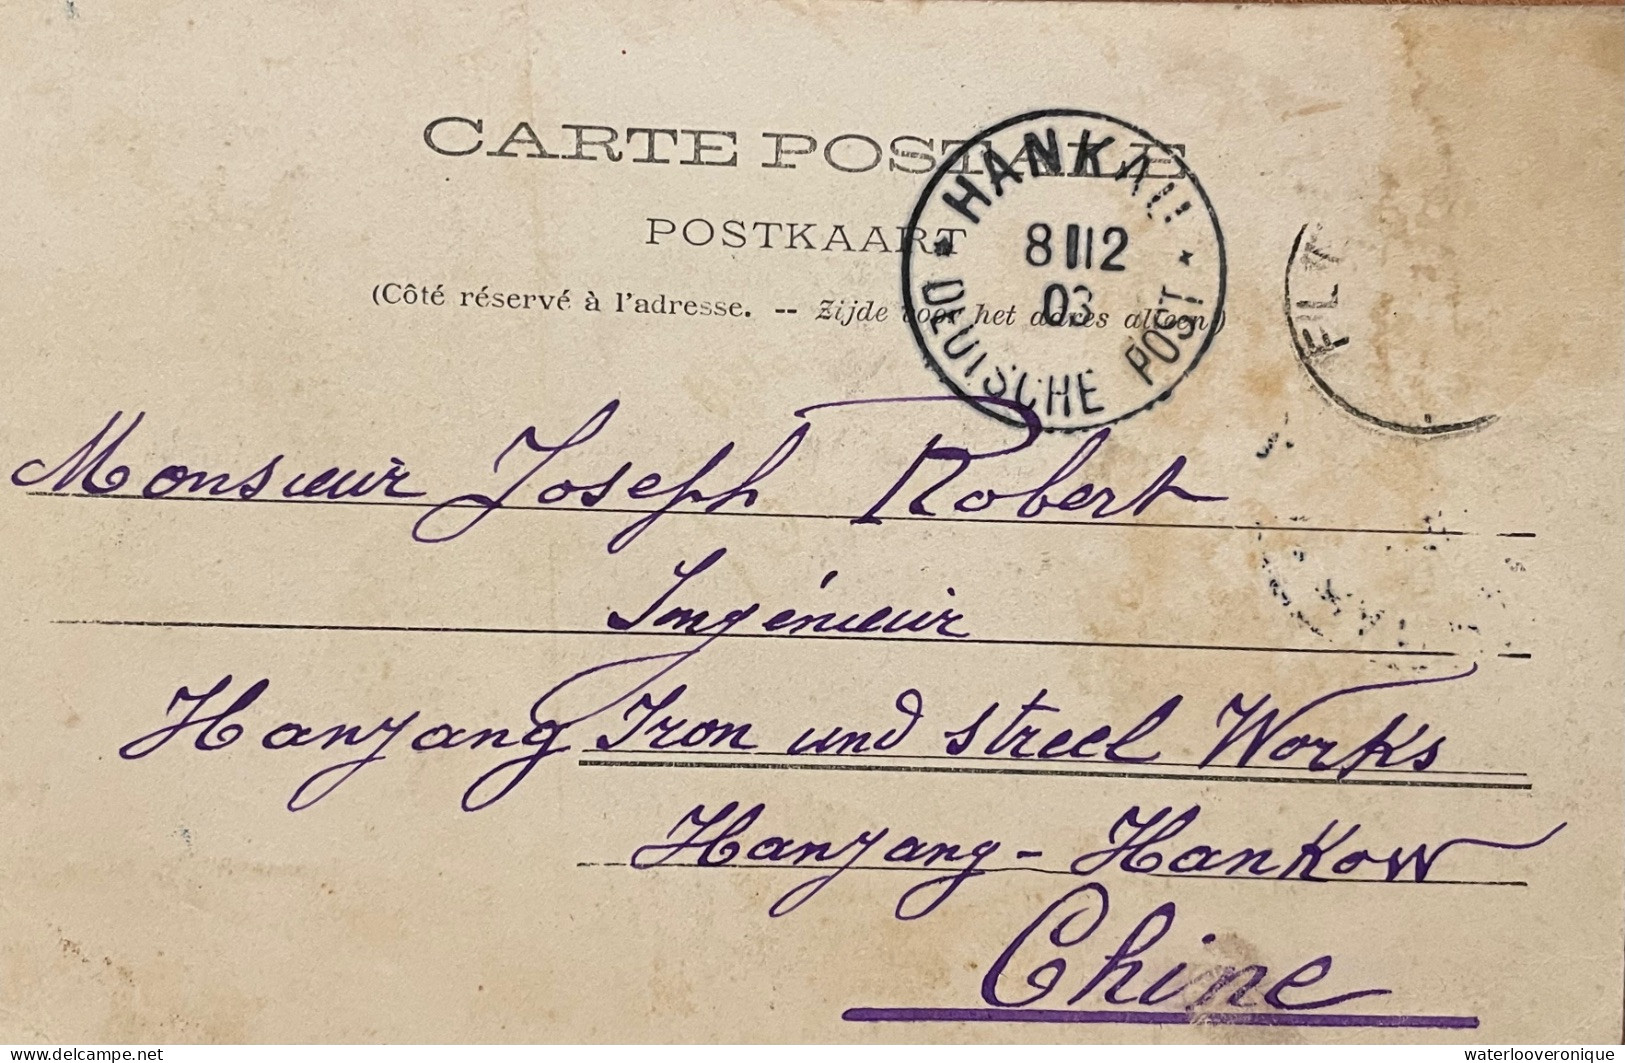 CARTE POSTALE
POSTKAART
(Côté réservé à l'adresse. -- Zijde voor het adres alleen)
HANKAU
8 12
03
DEUTSCHE POST
Monsieur Joseph Robert
Ingénieur
Hanyang Iron und streel Works
Hanyang - Hankow
Chine
delcampe.net
waterlooveronique